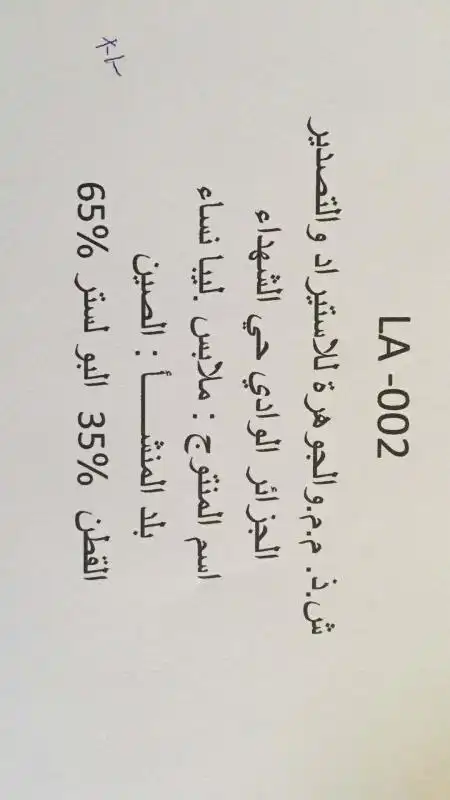 LA -002
ش.ذ. م.م.و الجو هرة للاستير اد و التصدير
الجزائر الوادي حي الشهداء
اسم المنتوج : ملابس .ليبا نساء
بلد المنشـــــأ : الصين
القطن %35 البو لستر %65